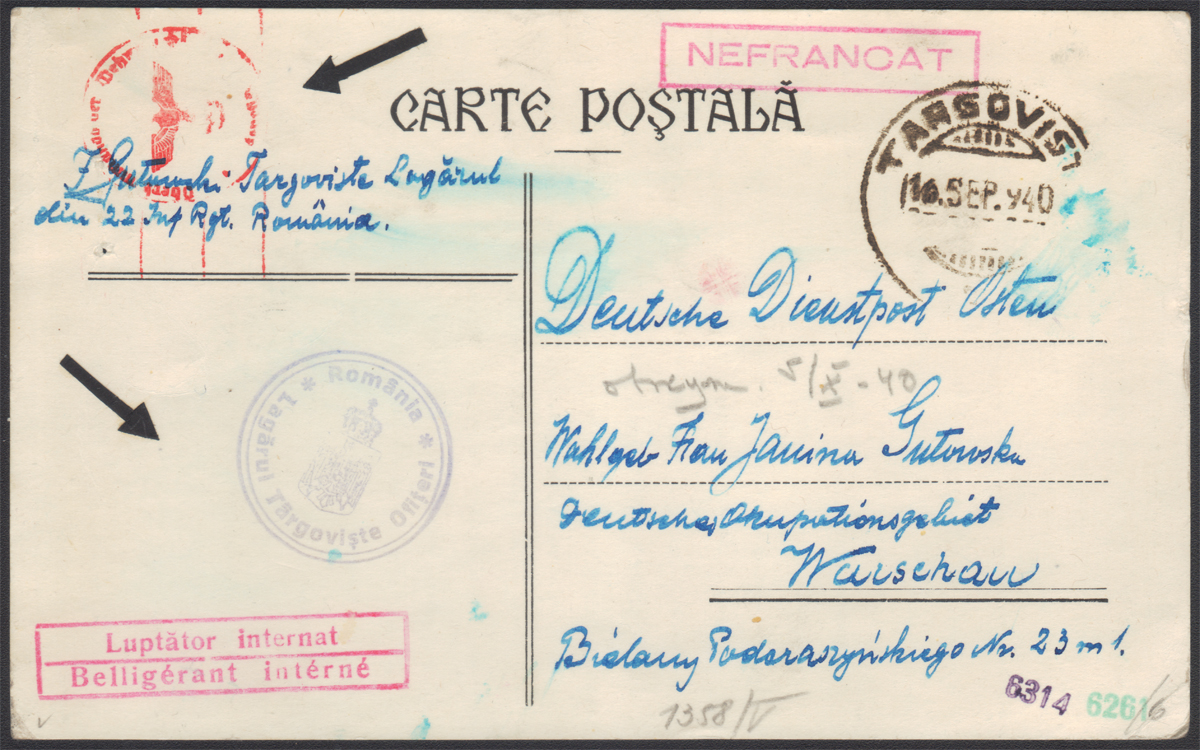 NEFRANCAT
CARTE POŞTALĂ
TARGOVIS
16.SEP.940
J Gutowski Targoviste Lagărul
din 22 Inf Rgt. România.
Deutsche Dienstpost Osten
5/X-40
Wohlgeb Frau Janina Gutowska
Deutsches Okupationsgebiet
Warschau
Bielany Podoraszyńskiego Nr. 23 m 1.
* România * Lagărul Târgovişte Ofiţeri
Luptător internat
Belligérant intérné
6314 6261/6
1358/V